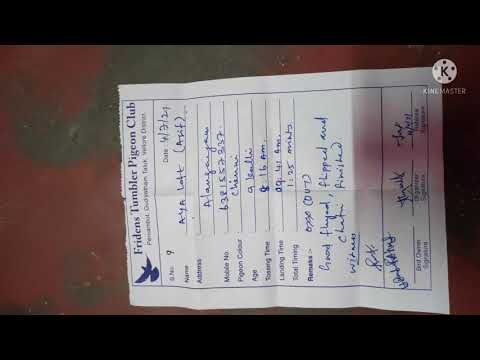 Fridens Tumbler Pigeon Club
Pernambut, Gudiyatham Taluk, Vellore District.
S.No. 9
Date 4/3/21
Name AYA Loft (Asif)
Address Alangayam
Mobile No 6381557337
Pigeon Colour Cheeni
Age 9 Kadhi
Tossing Time 8:16 Am.
Landing Time 09.41 am.
Total Timing 1:25 mints
Remarks :- OXO (OUT)
Good flyed, flipped and
Chatri finished
witness
Bird Owner
Signature
Organizer
Signature
Referee
Signature
K
KINEMASTER